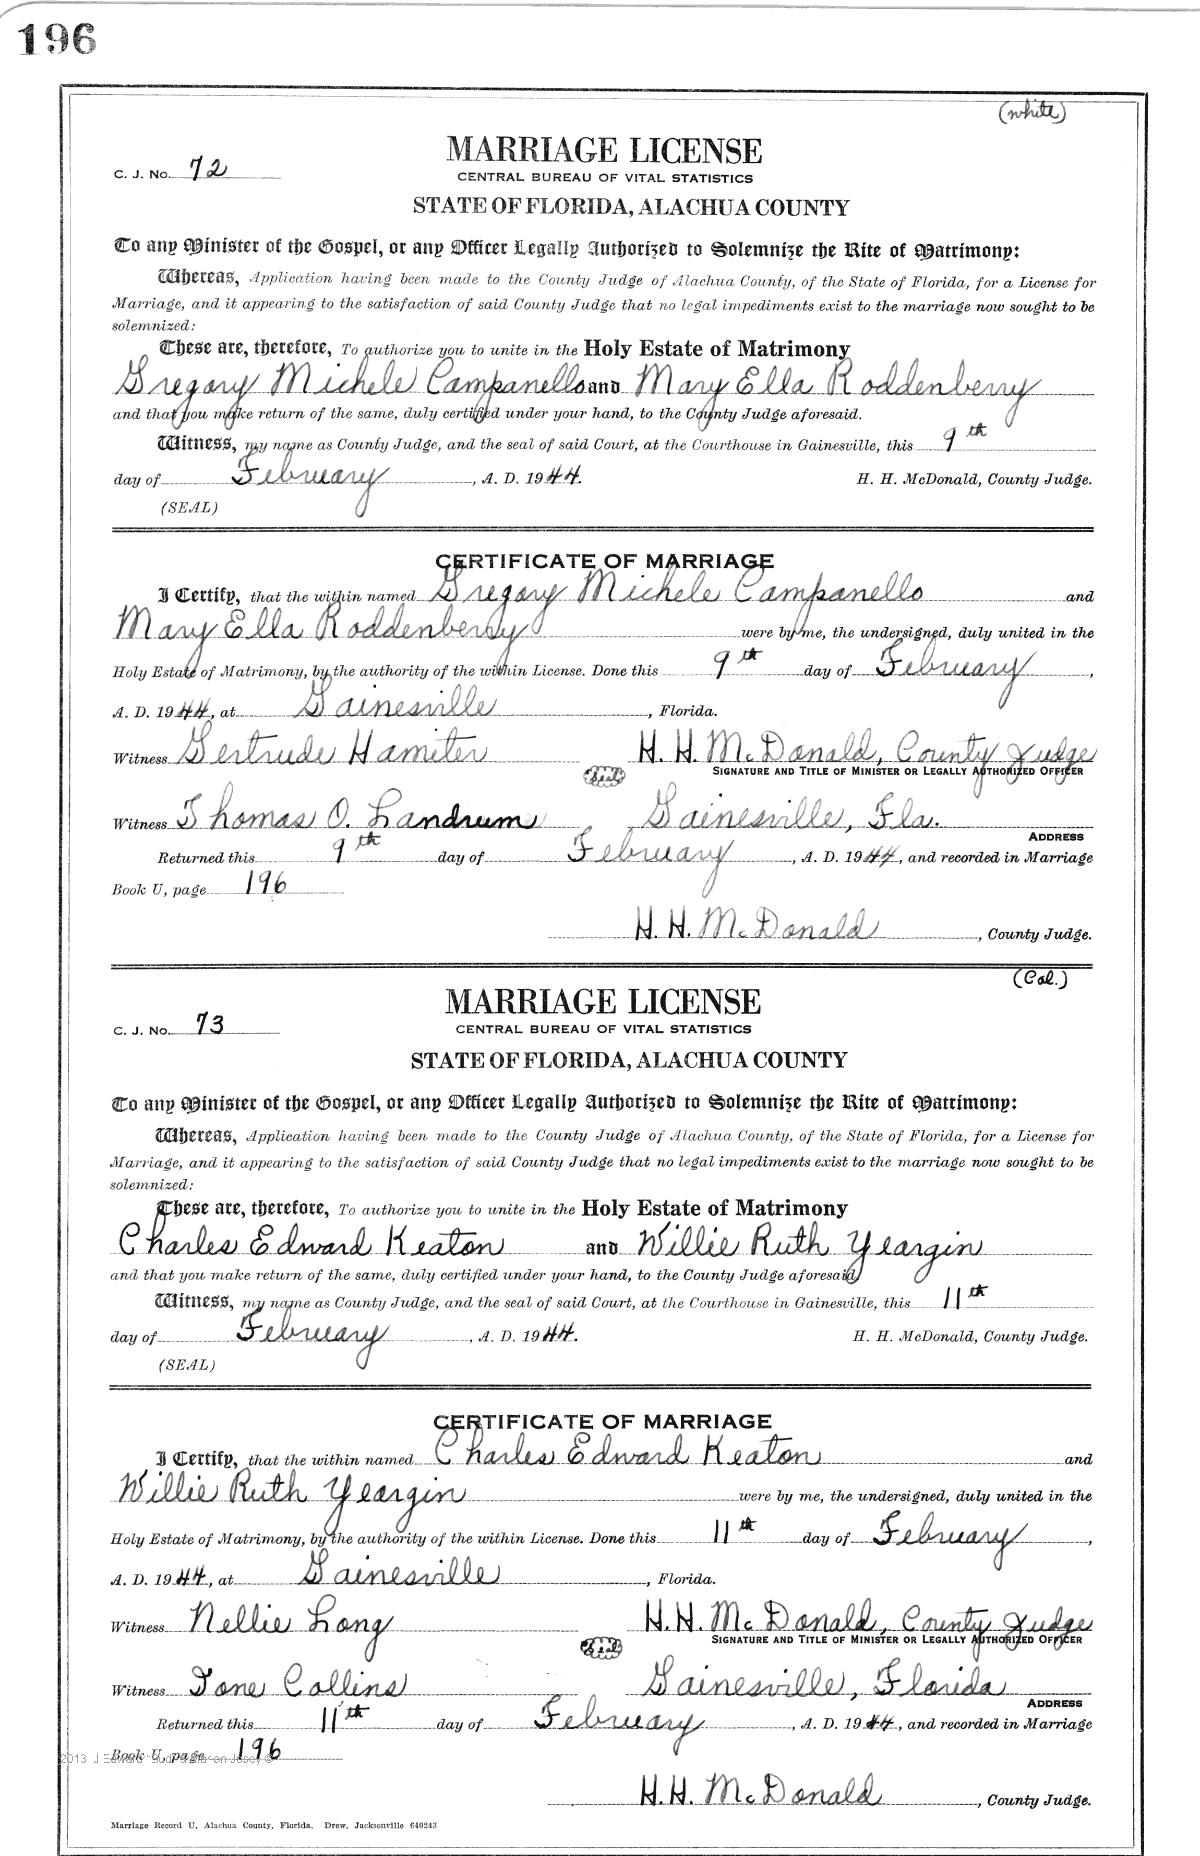 196
(white)
MARRIAGE LICENSE
C. J. No. 72
CENTRAL BUREAU OF VITAL STATISTICS
STATE OF FLORIDA, ALACHUA COUNTY
To any Minister of the Gospel, or any Officer Legally Authorized to Solemnize the Rite of Matrimony:
Whereas, Application having been made to the County Judge of Alachua County, of the State of Florida, for a License for
Marriage, and it appearing to the satisfaction of said County Judge that no legal impediments exist to the marriage now sought to be
solemnized:
These are, therefore, To authorize you to unite in the Holy Estate of Matrimony
Gregory Michele Campanello and Mary Ella Roddenberry
and that you make return of the same, duly certified under your hand, to the County Judge aforesaid.
Witness, my name as County Judge, and the seal of said Court, at the Courthouse in Gainesville, this 9th
day of February, A. D. 1944. H. H. McDonald, County Judge.
(SEAL)
CERTIFICATE OF MARRIAGE
I Certify, that the within named Gregory Michele Campanello and
Mary Ella Roddenberry were by me, the undersigned, duly united in the
Holy Estate of Matrimony, by the authority of the within License. Done this 9th day of February,
A. D. 1944, at Gainesville, Florida.
Witness Gertrude Hamiter H. H. McDonald, County Judge
Seal SIGNATURE AND TITLE OF MINISTER OR LEGALLY AUTHORIZED OFFICER
Witness Thomas O. Landrum Gainesville, Fla.
ADDRESS
Returned this 9th day of February, A. D. 1944, and recorded in Marriage
Book U, page 196
H. H. McDonald, County Judge.
(Col.)
MARRIAGE LICENSE
C. J. No. 73
CENTRAL BUREAU OF VITAL STATISTICS
STATE OF FLORIDA, ALACHUA COUNTY
To any Minister of the Gospel, or any Officer Legally Authorized to Solemnize the Rite of Matrimony:
Whereas, Application having been made to the County Judge of Alachua County, of the State of Florida, for a License for
Marriage, and it appearing to the satisfaction of said County Judge that no legal impediments exist to the marriage now sought to be
solemnized:
These are, therefore, To authorize you to unite in the Holy Estate of Matrimony
Charles Edward Keaton and Willie Ruth Yeargin
and that you make return of the same, duly certified under your hand, to the County Judge aforesaid
Witness, my name as County Judge, and the seal of said Court, at the Courthouse in Gainesville, this 11th
day of February, A. D. 1944. H. H. McDonald, County Judge.
(SEAL)
CERTIFICATE OF MARRIAGE
I Certify, that the within named Charles Edward Keaton and
Willie Ruth Yeargin were by me, the undersigned, duly united in the
Holy Estate of Matrimony, by the authority of the within License. Done this 11th day of February,
A. D. 1944, at Gainesville, Florida.
Witness Nellie Long H. H. McDonald, County Judge
Seal SIGNATURE AND TITLE OF MINISTER OR LEGALLY AUTHORIZED OFFICER
Witness Tone Collins Gainesville, Florida
ADDRESS
Returned this 11th day of February, A. D. 1944, and recorded in Marriage
Book U, page 196
2013 J Edward
H. H. McDonald, County Judge.
Marriage Record U, Alachua County, Florida. Drew, Jacksonville 640243